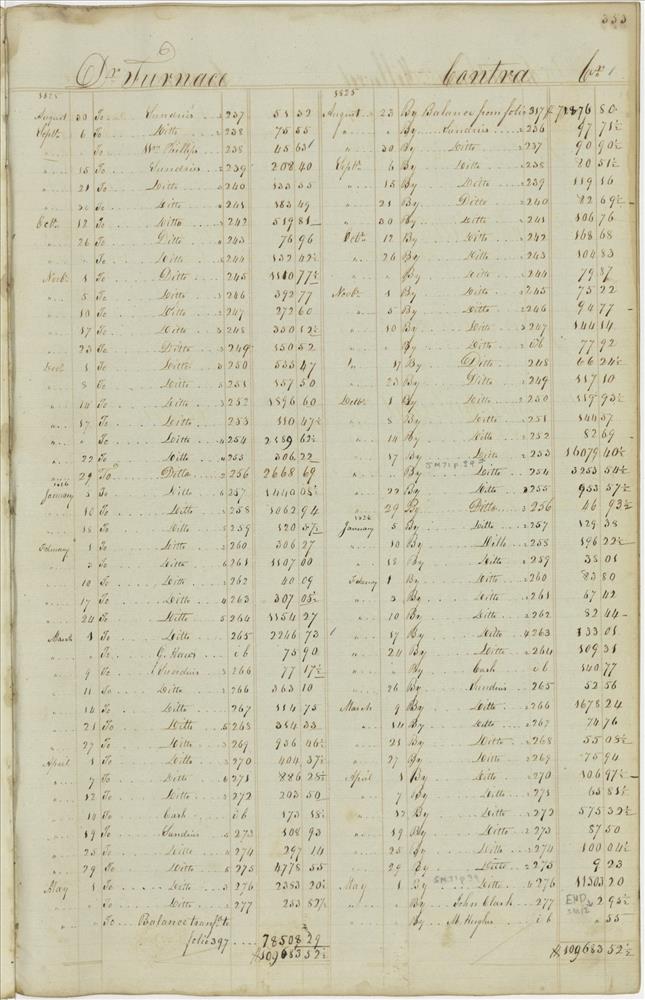 333
Dr Furnace
1825
August 30 To Sundries 237 51 32
Septr 6 To Ditto 238 75 55
" " To Wm Phillips 238 45 63
" 15 To Sundries 239 208 40
" 21 To Ditto 240 133 35
" 30 To Ditto 241 183 49
Octr 12 To Ditto 242 519 81
" 26 To Ditto 243 76 96
" " To Ditto 244 132 42½
Novr 1 To Ditto 245 1110 77½
" 5 To Ditto 246 392 77
" 10 To Ditto 247 272 60
" 17 To Ditto 248 330 12½
" 23 To Ditto 249 150 52
Decr 1 To Ditto 250 533 47
" 8 To Ditto 251 157 50
" 14 To Ditto 252 1896 60
" 17 To Ditto 253 110 47½
" " To Ditto 254 2189 62½
" 22 To Ditto 255 306 22
" 29 To Ditto 256 2668 69
1826
January 5 To Ditto 257 1440 08½
" 10 To Ditto 258 1062 94
" 18 To Ditto 259 120 57½
February 1 To Ditto 260 306 27
" 3 To Ditto 261 1107 00
" 10 To Ditto 262 40 09
" 17 To Ditto 263 307 05½
" 24 To Ditto 264 1154 27
March 1 To Ditto 265 2246 73
" " To ib 75 90
" 9 To Sundries 266 77 17½
" 11 To Ditto 266 363 10
" 14 To Ditto 267 114 75
" 21 To Ditto 268 314 33
" 27 To Ditto 269 936 46½
April 1 To Ditto 270 404 37½
" 7 To Ditto 271 886 28½
" 12 To Ditto 272 203 50
" 14 To Cash ib 173 18½
" 19 To Sundries 273 108 93
" 25 To Ditto 274 297 14
" 29 To Ditto 275 4778 55
May 1 To Ditto 276 2383 20½
" " To Ditto 277 253 82½
" " To Balance transfd to
folio 397 78508 29
$109683 52½
Contra Cr
1825
August 23 By Balance from folio 317 $71876 80
" " By Sundries 236 97 71½
" 30 By Ditto 237 90 90½
Septr 6 By Ditto 238 20 51½
" 15 By Ditto 239 119 16
" 21 By Ditto 240 82 69½
" 30 By Ditto 241 106 76
Octr 12 By Ditto 242 168 68
" 26 By Ditto 243 104 83
" " By Ditto 244 79 87
Novr 1 By Ditto 245 75 22
" 5 By Ditto 246 94 77
" 10 By Ditto 247 144 14
" " By Ditto ib 77 92
" 17 By Ditto 248 66 24½
" 23 By Ditto 249 117 10
Decr 1 By Ditto 250 119 93½
" 8 By Ditto 251 144 37
" 14 By Ditto 252 82 69
" 17 By Ditto 253 16079 40½
SM71 p.39
" " By Ditto 254 3253 54½
" 22 By Ditto 255 953 57½
" 29 By Ditto 256 46 93½
1826
January 5 By Ditto 257 129 38
" 10 By Ditto 258 196 22½
" 18 By Ditto 259 38 01
February 1 By Ditto 260 83 80
" 3 By Ditto 261 67 42
" 10 By Ditto 262 82 44
" 17 By Ditto 263 133 01
" 24 By Ditto 264 109 31
" " By Cash ib 140 77
" 26 By Sundries 265 52 56
March 9 By Ditto 266 1678 24
" 14 By Ditto 267 74 76
" 21 By Ditto 268 55 08½
" 27 By Ditto 269 75 94
April 1 By Ditto 270 106 97½
" 7 By Ditto 271 63 81½
" 12 By Ditto 272 575 32½
" 19 By Ditto 273 87 50
" 25 By Ditto 274 100 04½
" 29 By Ditto 275 9 23
SM71 p39
May 1 By Ditto 276 11503 20
" " By John Clark 277 2 95½
END
SM12
" " By M. Hughes ib " 55
$109683 52½